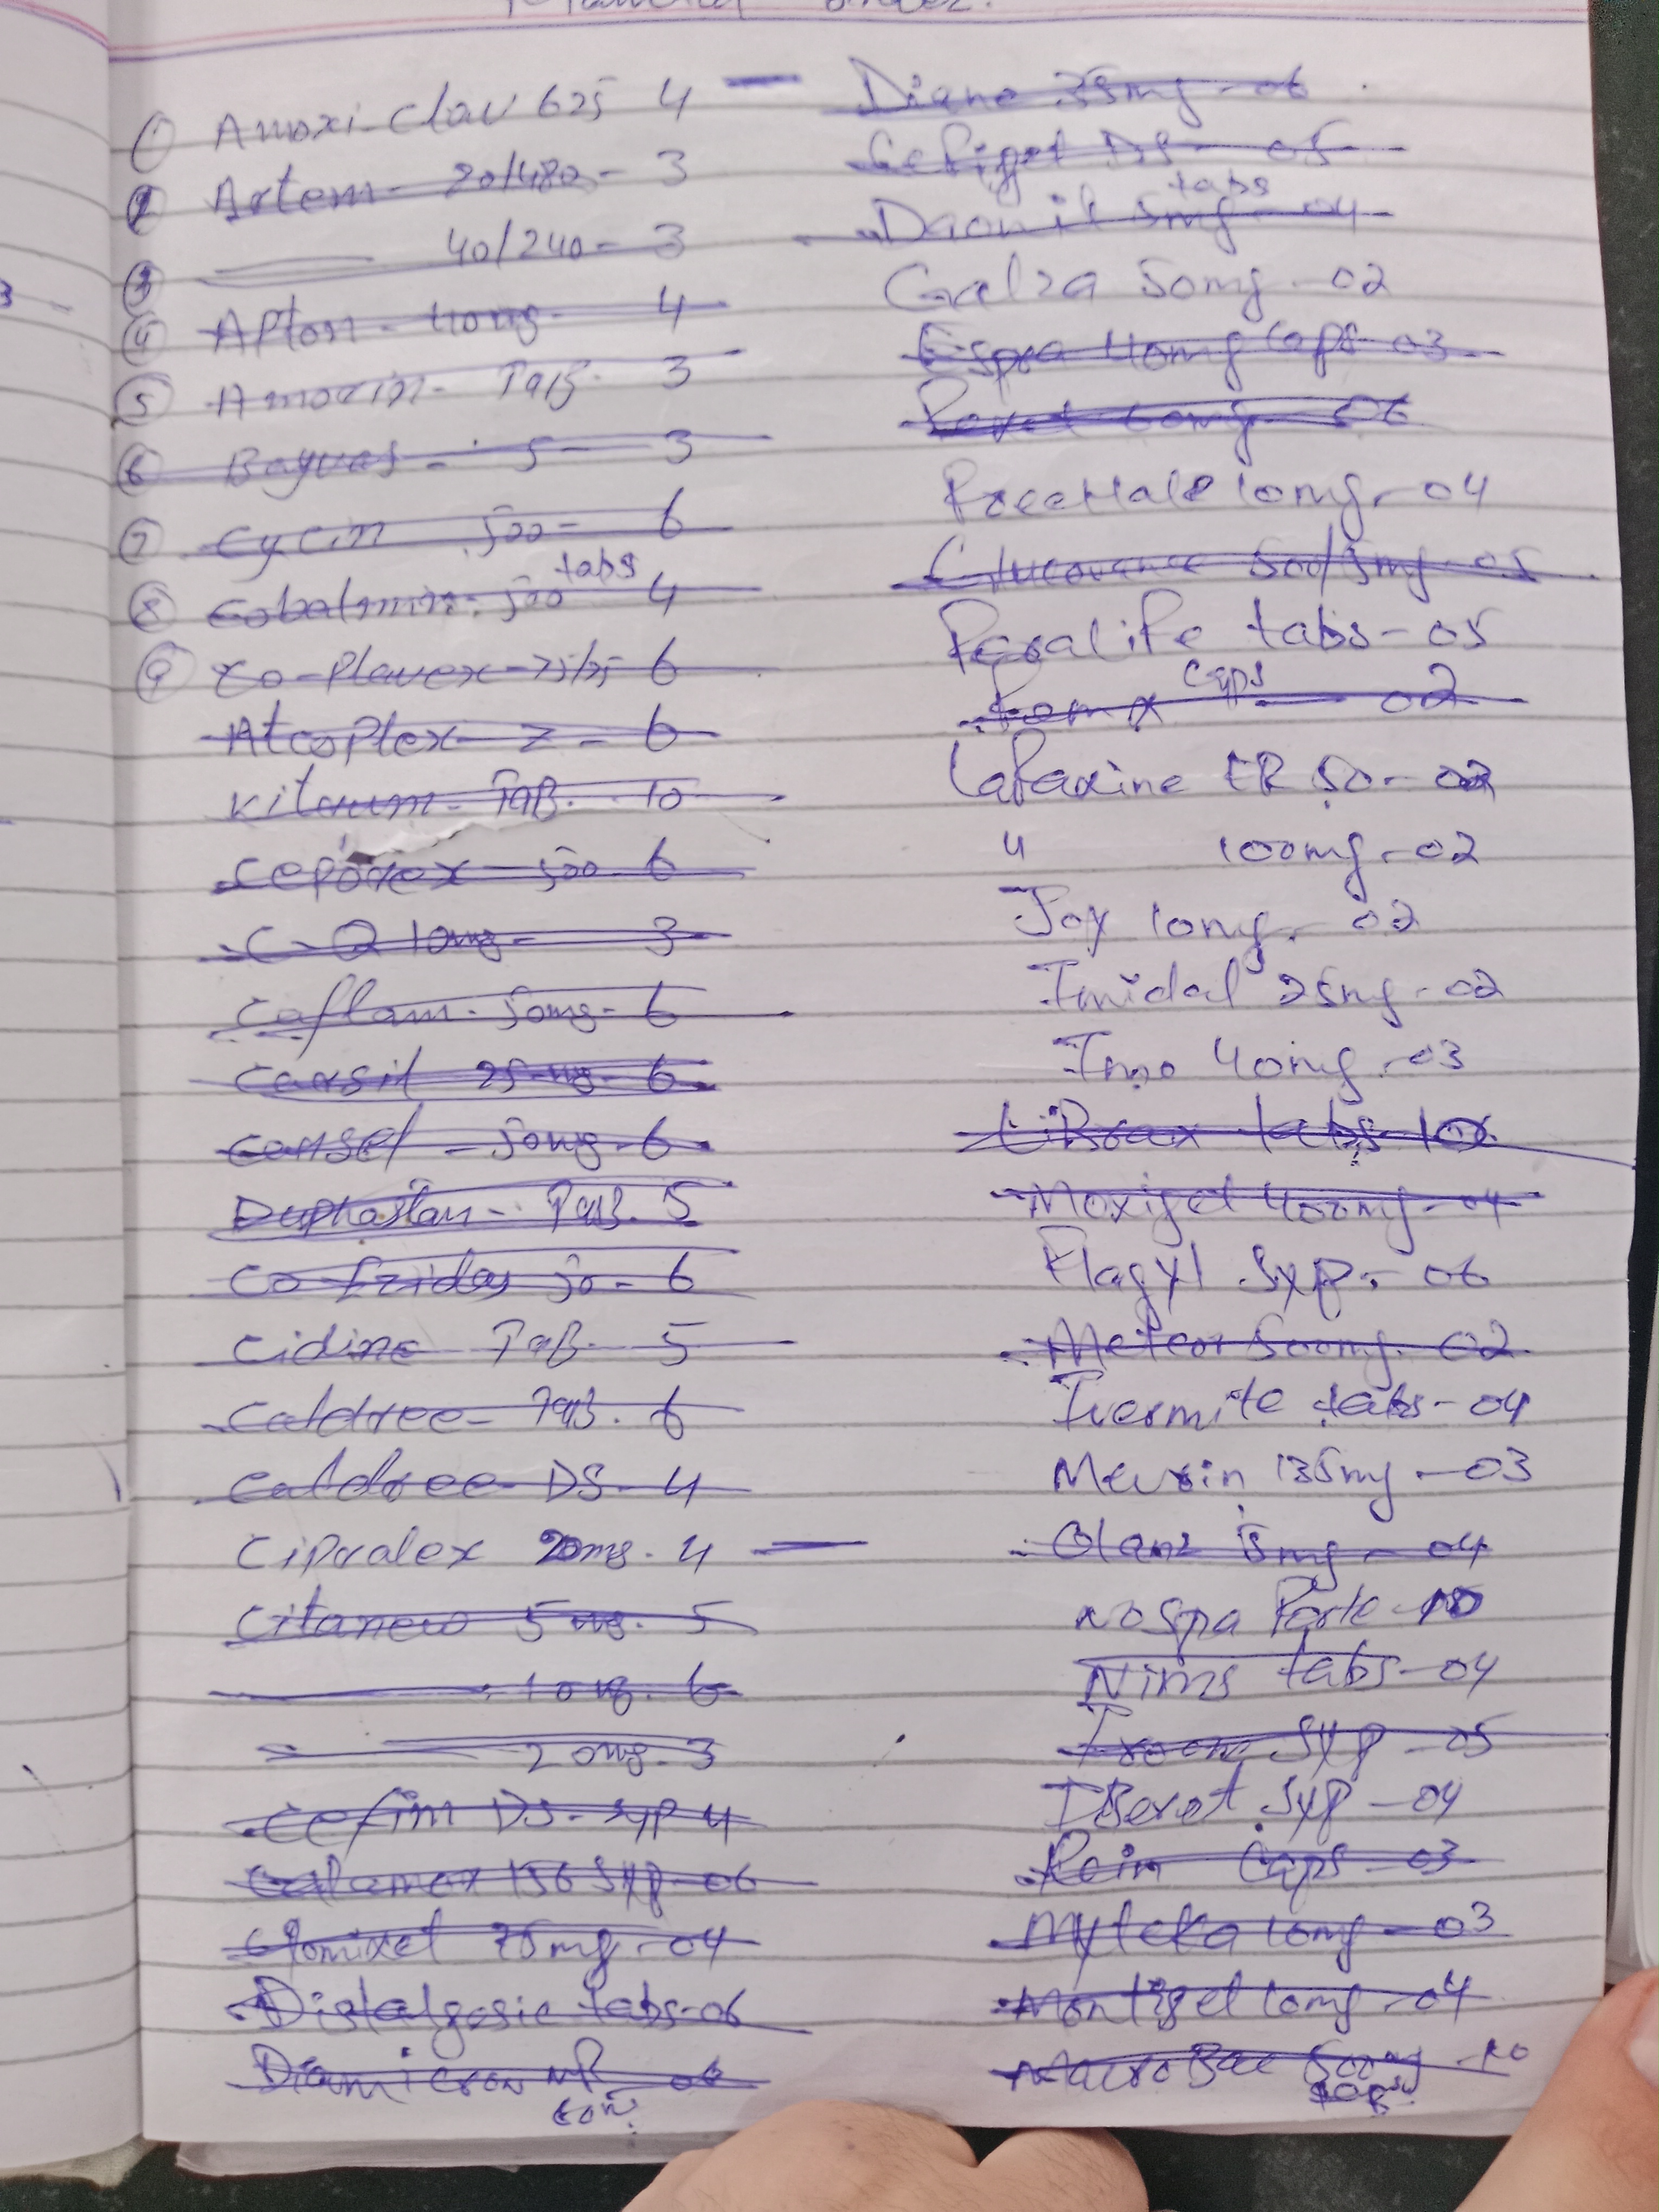 order.
① Amoxi-clav 625 4 —
② Artem - 20/480 - 3
③ 40/240 - 3
④ Apton - 40mg - 4
⑤ Amorin - Tab. 3
⑥ 5 - 3
⑦ Cycin 500 - 6
⑧ Cobalamin. 500 tabs 4
⑨ Co-Plavex - 75/75 6
Atcoplex - Z - 6
Tab. 10
Ceporex - 500 6
C-Q 10mg - 3
Caflam. 50mg - 6
Carsil 25mg - 6
Consel - 50mg - 6
Duphastan - Tab. 5
Co-Eziday 50 - 6
Cidine Tab. 5
Caldree - Tab. 6
Caldree DS - 4
Cipralex 20mg. 4 —
Citanew 5mg. 5
10mg. 6
20mg. 3
Cefim DS - syp 4
Calamox 156 Syp - 06
75mg - 04
Distalgesic tabs - 06
Diamicron MR - 06
60mg
Diane 35mg - 06
Cefiget DS - 05
Daonil 5mg tabs - 04
Gabza 50mg - 02
Espra 40mg Caps - 03
06
Freehale 10mg - 04
Glucovance 500/5mg - 05
Peralife tabs - 05
caps 02
Lafaxine ER 50 - 02
" 100mg - 02
Joy 10mg - 02
Imidal 25mg - 02
40mg - 03
LiBrax tabs 10
Moxiget 400mg - 04
Flagyl Syp. - 06
Meteor 500mg - 02
Ivermite tabs - 04
Mevrin 135mg - 03
Olanz 5mg - 04
Nospa Forte 10
Nims tabs - 04
Syp - 05
IBerot Syp - 04
Caps - 03
Myteka 10mg - 03
Montiget 10mg - 04
MacroBac 500mg - 10